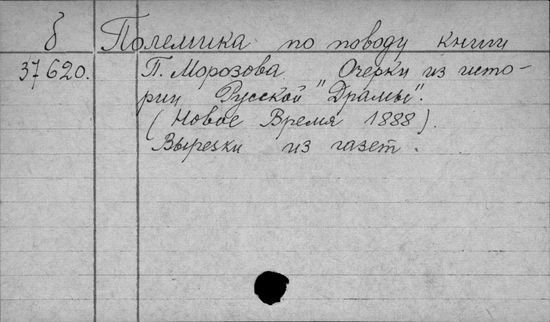 б Полемика по поводу книги
37620. П. Морозова Очерки из исто-
рии Русской "Драмы".
(Новое Время 1888).
Вырезки из газет.